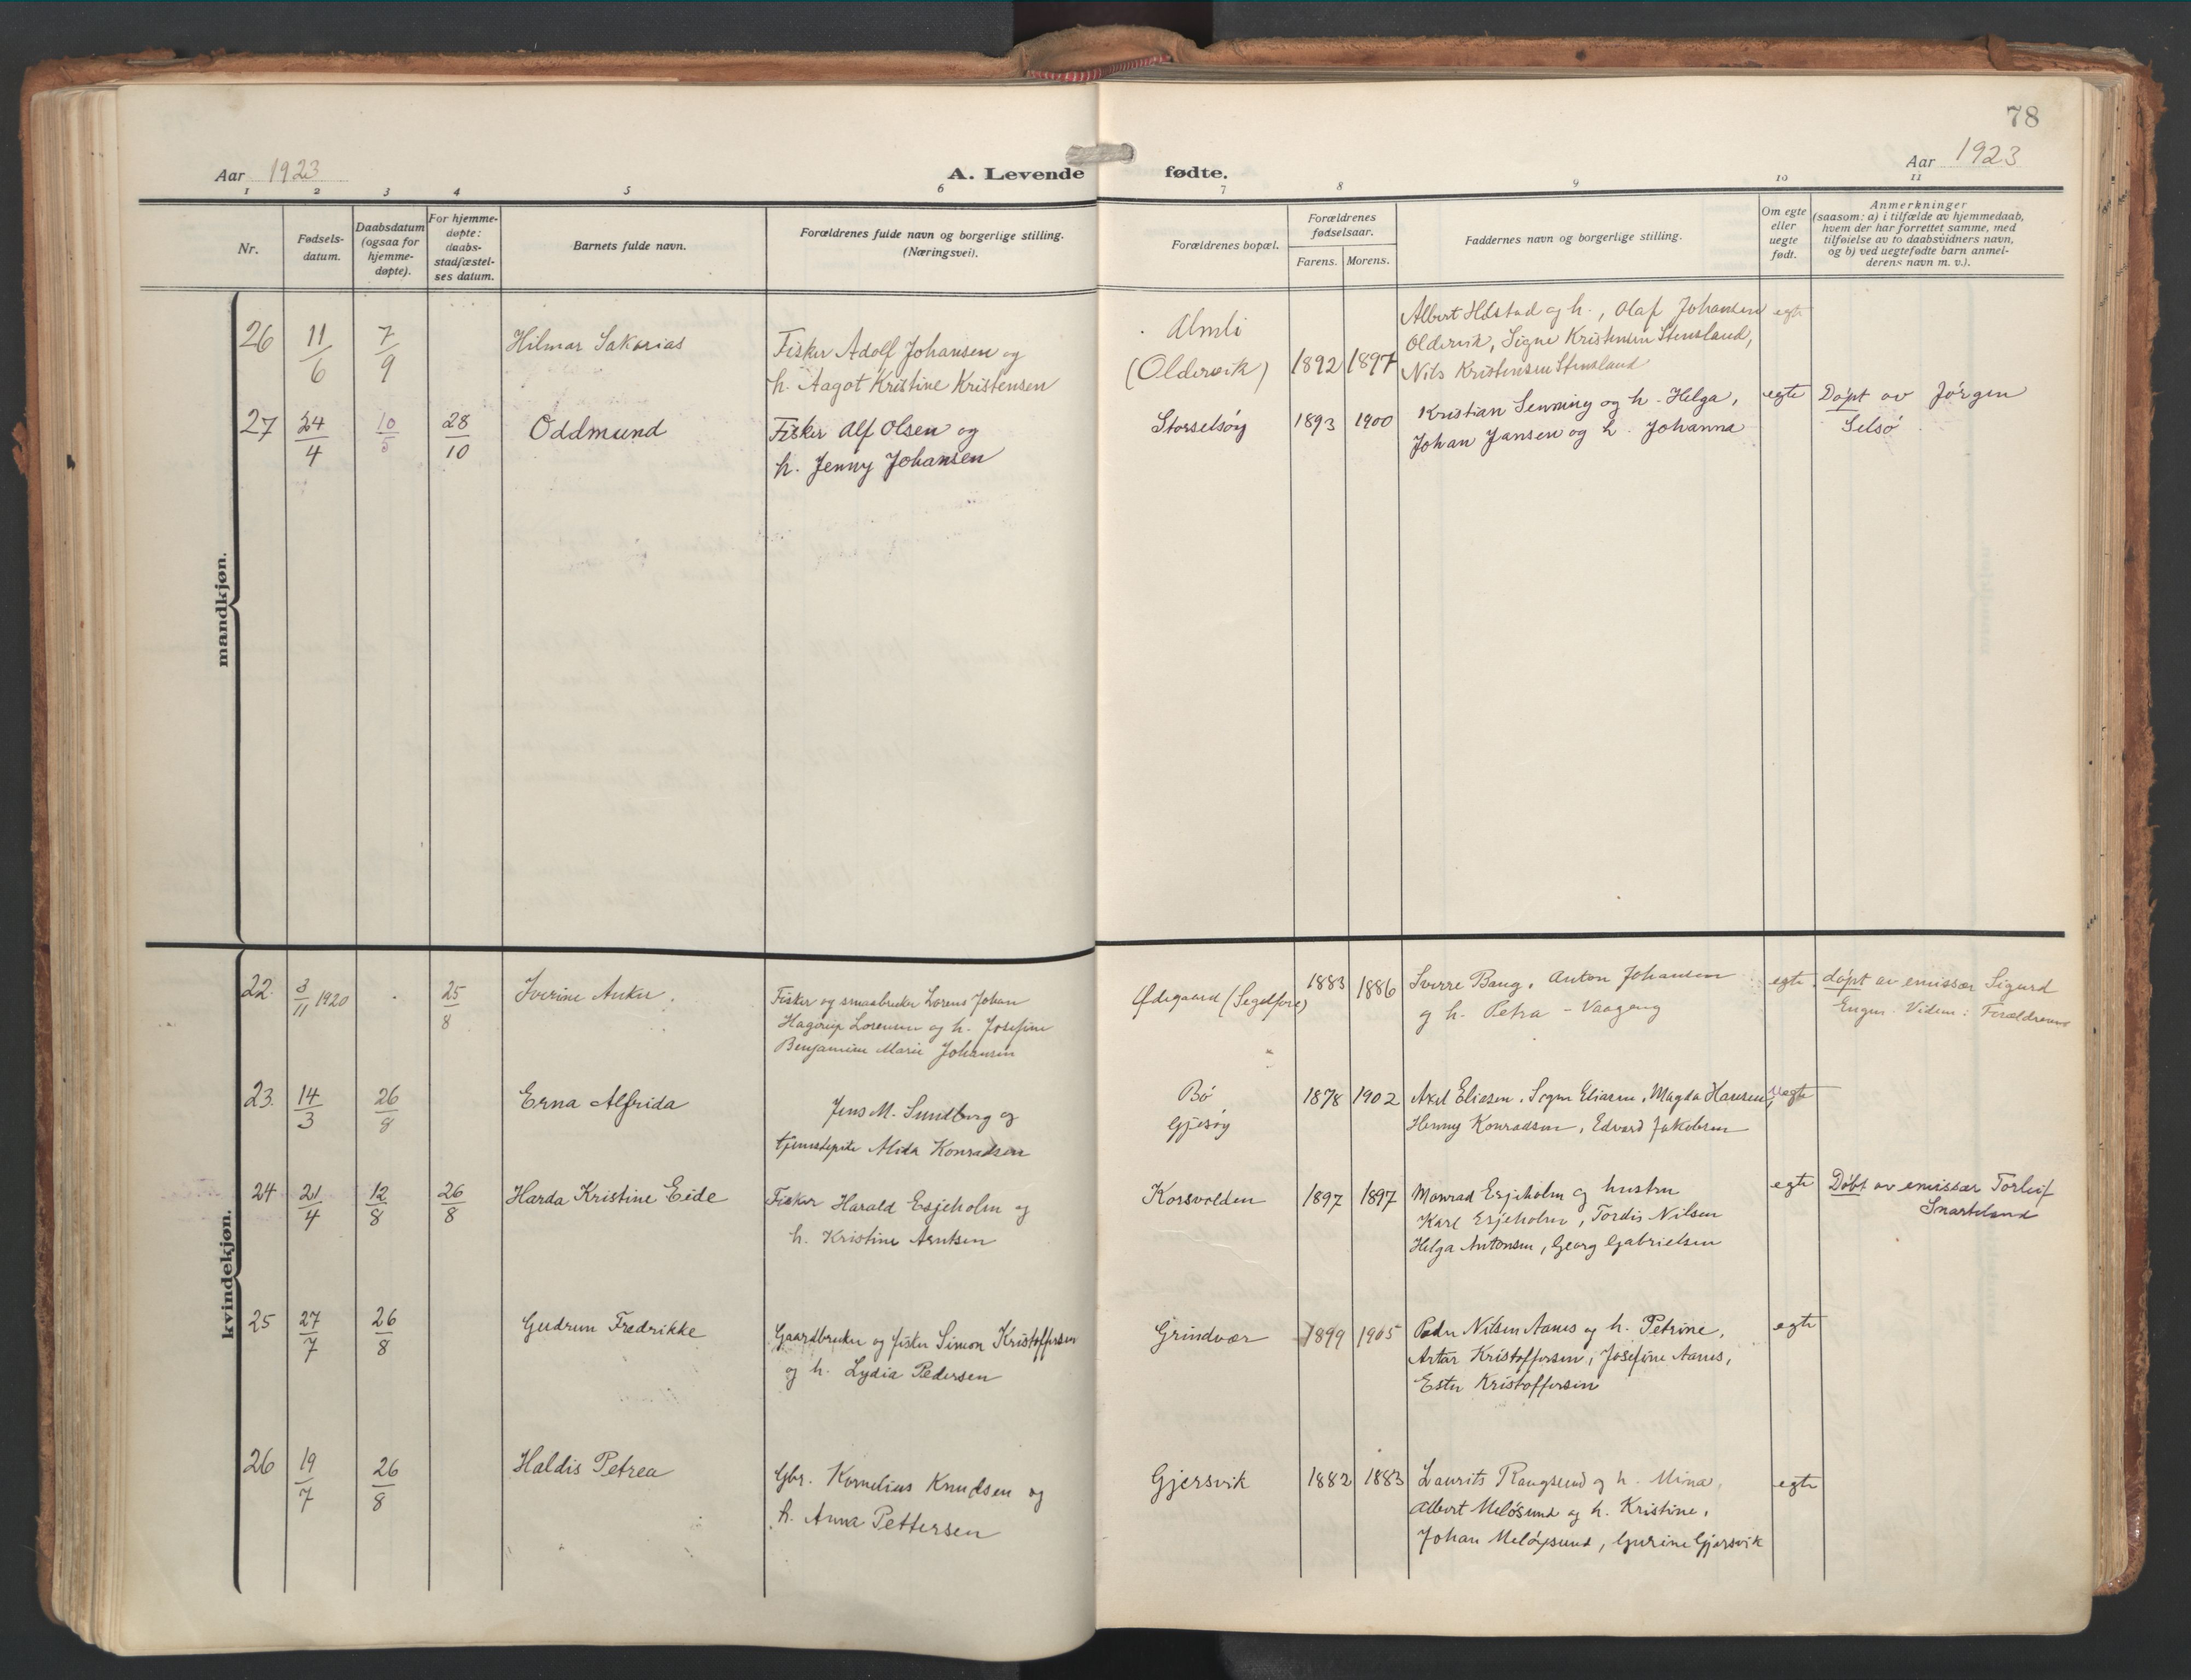 78
Aar 1923
A. Levende fødte.
Aar 1923
1 2 3 4 5 6 7 8 9 10 11
Nr.
Fødsels-
datum.
Daabsdatum
(ogsaa for
hjemme-
døpte).
For hjemme-
døpte:
daabs-
stadfæstel-
ses datum.
Barnets fulde navn.
Forældrenes fulde navn og borgerlige stilling.
(Næringsvei).
Forældrenes bopæl.
Forældrenes
fødselsaar.
Farens. Morens.
Faddernes navn og borgerlige stilling.
Om egte
eller
uegte
født.
Anmerkninger
(saasom: a) i tilfælde av hjemmedaab,
hvem der har forrettet samme, med
tilføielse av to daabsvidners navn,
og b) ved uegtefødte barn anmel-
derens navn m. v.).
mandkjøn.
26 11/6 7/9 Hilmar Sakarias
Fisker Adolf Johansen og
h. Aagot Kristine Kristensen
Almli
(Oldervik) 1892 1897
Albert Hilstad og h., Olaf Johansen
Oldervik, Signe Kristensen Stensland,
Nils Kristensen Stensland
egte
27 24/4 10/5 28/10 Oddmund
Fisker Alf Olsen og
h. Jenny Johansen
Storselsöy 1893 1900
Kristian Senning og h. Helga,
Johan Jansen og h. Johanna
egte
Döpt av Jörgen
Selsö
kvindekjøn.
22. 3/11 1920 25/8 Sverine Anker
Fisker og smaabruker Lorens Johan
Hagerup Lorensen og h. Josefine
Benjamine Marie Johansen
Ødegaard (Segelfore) 1883 1886
Sverre Baug, Anton Johansen
og h. Petra - Vaageng
egte
döpt av emissær Sigurd
Engus. Vidne: Forældrene
23. 14/3 26/8 Erna Alfrida
Jens M. Sundberg og
tjenestepike Alida Konradsen
Bö
Gjesöy 1878 1902
Axel Eliasen, Signe Eliasen, Magda Hansen,
Henny Konradsen, Edvard Jakobsen
Uegte
24 21/4 12/8 26/8 Harda Kristine Eide
Fisker Harald Esjeholm og
h. Kristine Arntsen
Korsvolden 1897 1897
Monrad Esjeholm og hustru
Karl Esjeholm, Tordis Nilsen
Helga Antonsen, Georg Gabrielsen
egte
Döbt av emissær Torleif
Snarteland
25 27/7 26/8 Gudrun Fredrikke
Gaardbruker og fisker Simon Kristoffersen
og h. Lydia Pedersen
Grindvær 1899 1905
Peder Nilsen Aanes og h. Petrine,
Artur Kristoffersen, Josefine Aanes,
Ester Kristoffersen
egte
26 19/7 26/8 Haldis Petrea
Gbr. Kornelius Knudsen og
h. Anna Pettersen
Gjersvik 1882 1883
Laurits Raugsund og h. Mina,
Albert Melösund og h. Kristine,
Johan Melöysund, Gurine Gjersvik
egte